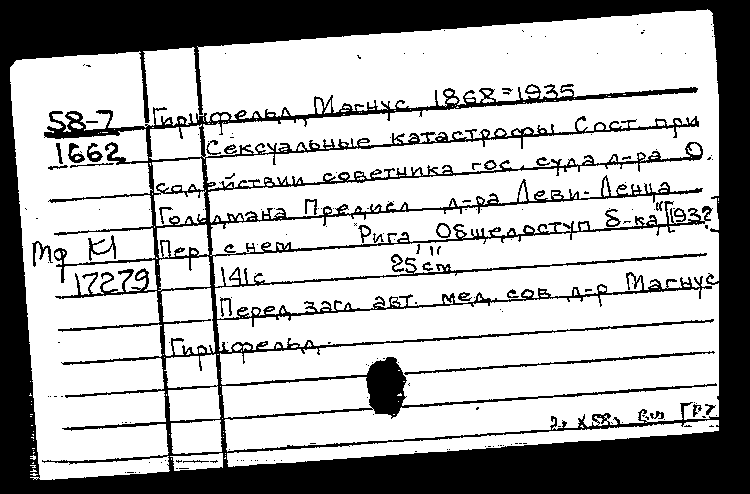 58-7 Гиршфельд, Магнус, 1868=1935
1662 Сексуальные катастрофы Сост. при
содействии советника гос. суда д-ра О.
Гольдмана Предисл д-ра Леви-Ленца
Мф К1 Пер с нем Рига, "Общедоступ б-ка", [193?
17279 141с 25 см,
Перед загл. авт. мед. сов д-р Магнус
Гиршфельд.